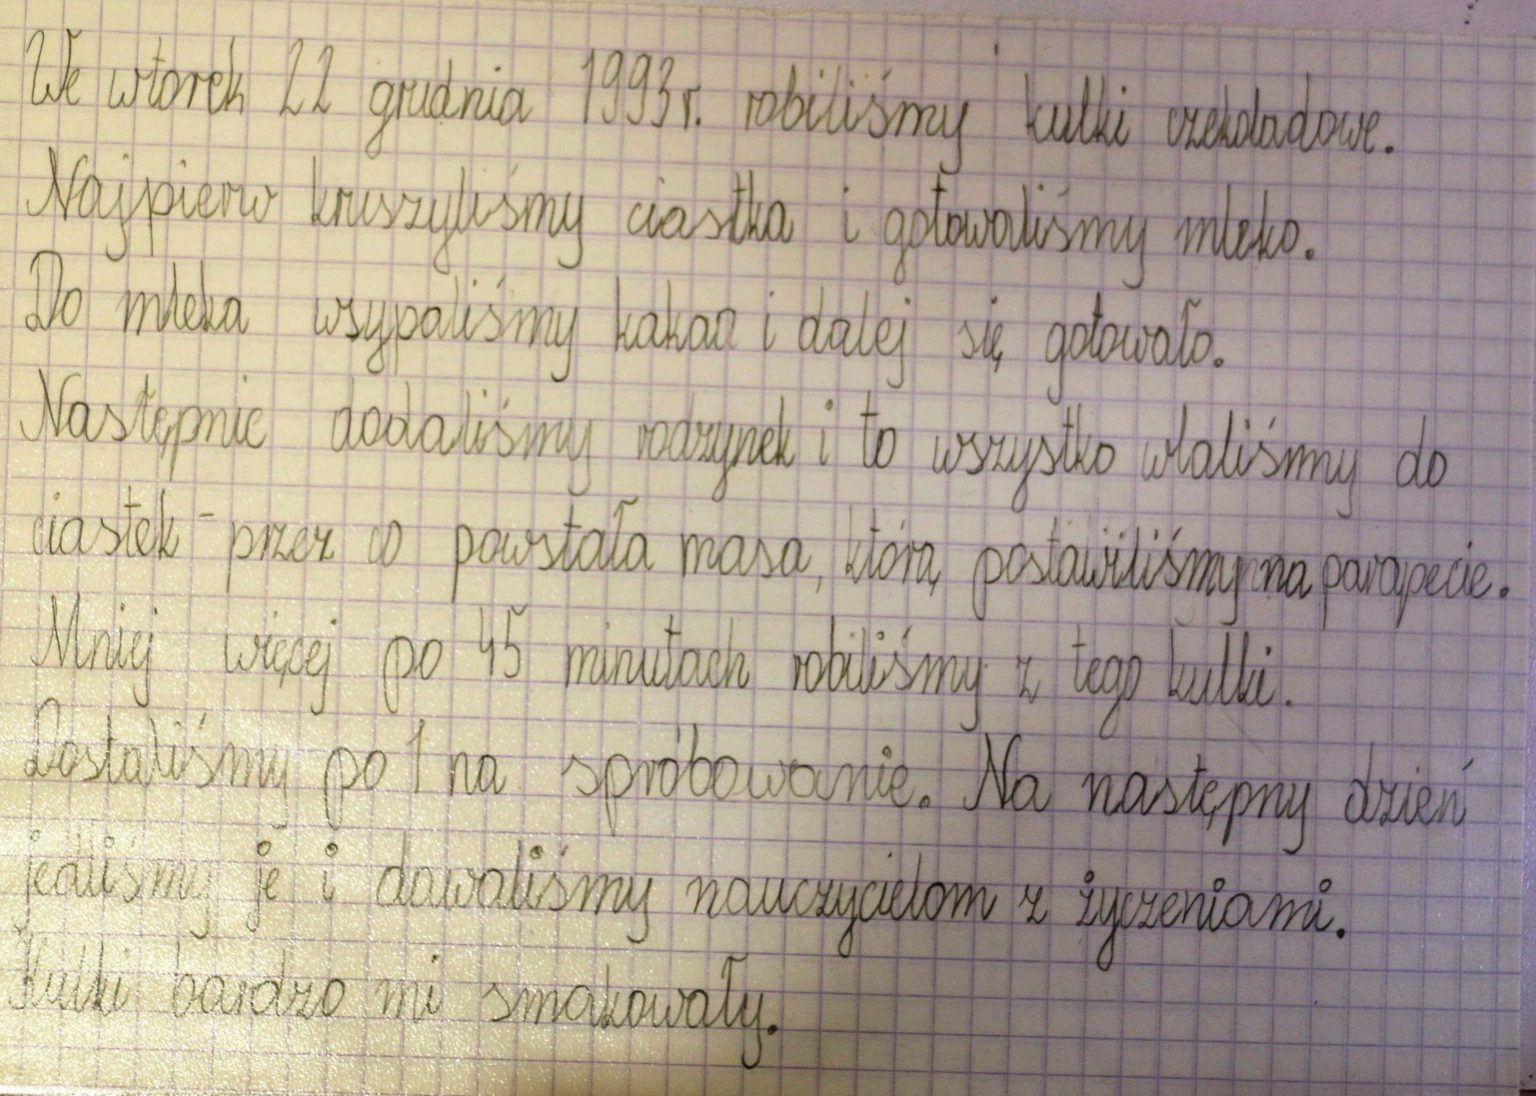 We wtorek 22 grudnia 1993r. robiliśmy kulki czekoladowe.
Najpierw kruszyliśmy ciastka i gotowaliśmy mleko.
Do mleka wsypaliśmy kakao i dalej się gotowało.
Następnie dodaliśmy rodzynek i to wszystko wlaliśmy do
ciastek - przez co powstała masa, którą postawiliśmy na parapecie.
Mniej więcej po 45 minutach robiliśmy z tego kulki.
Dostaliśmy po 1 na spróbowanie. Na następny dzień
jedliśmy je i dawaliśmy nauczycielom z życzeniami.
Kulki bardzo mi smakowały.